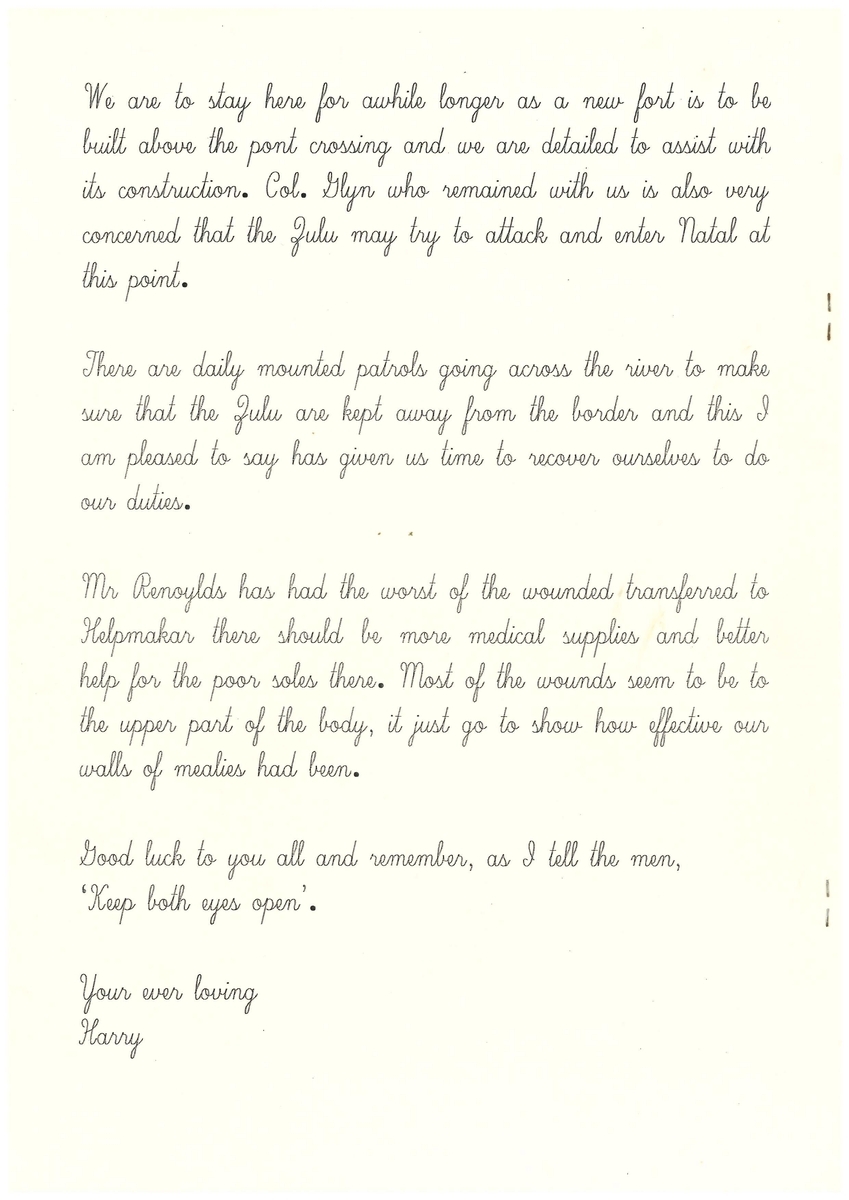 We are to stay here for awhile longer as a new fort is to be
built above the pont crossing and we are detailed to assist with
its construction. Col. Glyn who remained with us is also very
concerned that the Zulu may try to attack and enter Natal at
this point.
There are daily mounted patrols going across the river to make
sure that the Zulu are kept away from the border and this I
am pleased to say has given us time to recover ourselves to do
our duties.
Mr Renoylds has had the worst of the wounded transferred to
Helpmakar there should be more medical supplies and better
help for the poor soles there. Most of the wounds seem to be to
the upper part of the body, it just go to show how effective our
walls of mealies had been.
Good luck to you all and remember, as I tell the men,
‘Keep both eyes open’.
Your ever loving
Harry